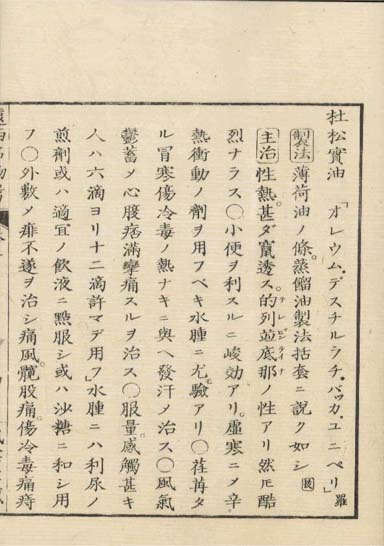 杜松實油「オレウム、デスチルラチ、バッカ、ユニペリ」羅
製法 薄荷油ノ條。蒸餾油製法括套ニ說ク如シ
主治 性熱。甚ダ竄透ス。的列並底那テレビンテイナノ性アリ然𪜈酷
烈ナラス〇小便ヲ利スルニ峻効アリ。虛寒ニメ辛
熱衝動ノ劑ヲ用フベキ水腫ニ尤驗アリ〇荏苒タ
ル冒寒傷冷毒ノ熱ナキニ與ヘ發汗メ治ス〇風氣
鬱蓄メ心腹痞滿攣痛スルヲ治ス〇服量。感觸甚キ
人ハ六滴ヨリ十二滴許マデ用フ」水腫ニハ利尿ノ
煎劑或ハ適宜ノ飲液ニ㸃服シ或ハ沙糖ニ和シ用
フ〇外敷メ痱不遂ヲ治シ痛風。髖股痛。傷冷毒痛痔